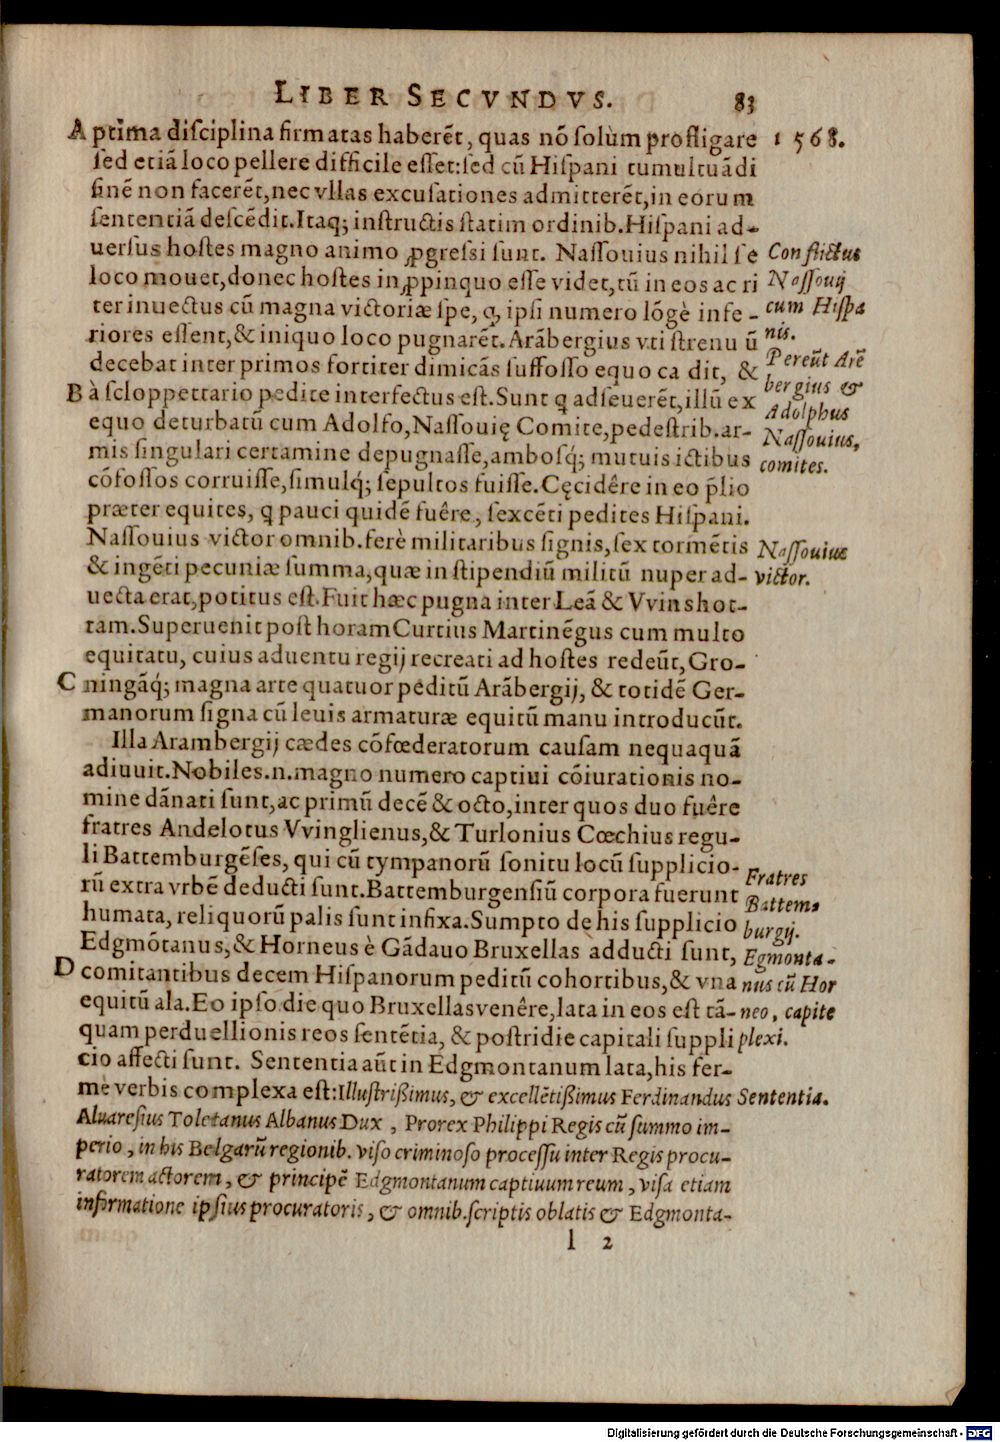 LIBER SECVNDVS. 83
A prima disciplina firmatas haberẽt, quas nõ solùm profligare 1568.
sed etiã loco pellere difficile esset: sed cũ Hispani tumultuãdi
finẽ non facerẽt, nec vllas excusationes admitterẽt, in eorum
sententiã descẽdit. Itaq; instructis statim ordinib. Hispani ad-
uersus hostes magno animo ꝓgressi sunt. Nassouius nihil se
loco mouet, donec hostes in ꝓpinquo esse videt, tũ in eos ac ri
ter inuectus cũ magna victoriæ spe, q, ipsi numero lõgè infe-
riores essent, & iniquo loco pugnarẽt. Arãbergius vti strenu ũ
decebat inter primos fortiter dimicãs suffosso equo ca dit, &
B à scloppettario pedite interfectus est. Sunt q adseuerẽt, illũ ex
equo deturbatũ cum Adolfo, Nassouię Comite, pedestrib. ar-
mis singulari certamine depugnasse, ambosq́; mutuis ictibus
cõfossos corruisse, simulq́; sepultos fuisse. Cęcidêre in eo p̃lio
præter equites, q pauci quidẽ fuêre, sexcẽti pedites Hispani.
Nassouius victor omnib. ferè militaribus signis, sex tormẽtis
& ingẽti pecuniæ summa, quæ in stipendiũ militũ nuper ad-
uecta erat, potitus est. Fuit hæc pugna inter Leã & Vvinshot-
tam. Superuenit post horam Curtius Martinẽgus cum multo
equitatu, cuius aduentu regij recreati ad hostes redeũt, Gro-
C ningãq́; magna arte quatuor peditũ Arãbergij, & totidẽ Ger-
manorum signa cũ leuis armaturæ equitũ manu introducũt.
Illa Arambergij cædes cõfœderatorum causam nequaquã
adiuuit. Nobiles. n. magno numero captiui cõiurationis no-
mine dãnati sunt, ac primũ decẽ & octo, inter quos duo fuêre
fratres Andelotus Vvinglienus, & Turlonius Cœchius regu-
li Battemburgẽses, qui cũ tympanorũ sonitu locũ supplicio-
rũ extra vrbẽ deducti sunt. Battemburgensiũ corpora fuerunt
humata, reliquorũ palis sunt infixa. Sumpto de his supplicio
Edgmõtanus, & Horneus è Gãdauo Bruxellas adducti sunt,
D comitantibus decem Hispanorum peditũ cohortibus, & vna
equitũ ala. Eo ipso die quo Bruxellas venêre, lata in eos est tã-
quam perduellionis reos sentẽtia, & postridie capitali suppli
cio affecti sunt. Sententia aũt in Edgmontanum lata, his fer-
me verbis complexa est: Illustrißimus, & excellẽtißimus Ferdinandus
Aluaresius Toletanus Albanus Dux, Prorex Philippi Regis cũ summo im-
perio, in his Belgarũ regionib. viso criminoso processu inter Regis procu-
ratorem actorem, & principẽ Edgmontanum captiuum reum, visa etiam
informatione ipsius procuratoris, & omnib. scriptis oblatis & Edgmonta-
l 2
Conflictus
Nassouij
cum Hispa
nis.
Pereũt Arẽ
bergius &
Adolphus
Nassouius,
comites.
Nassouius
victor.
Fratres
Battem-
burgij.
Egmonta-
nus cũ Hor
neo, capite
plexi.
Sententia.
Digitalisierung gefördert durch die Deutsche Forschungsgemeinschaft - DFG